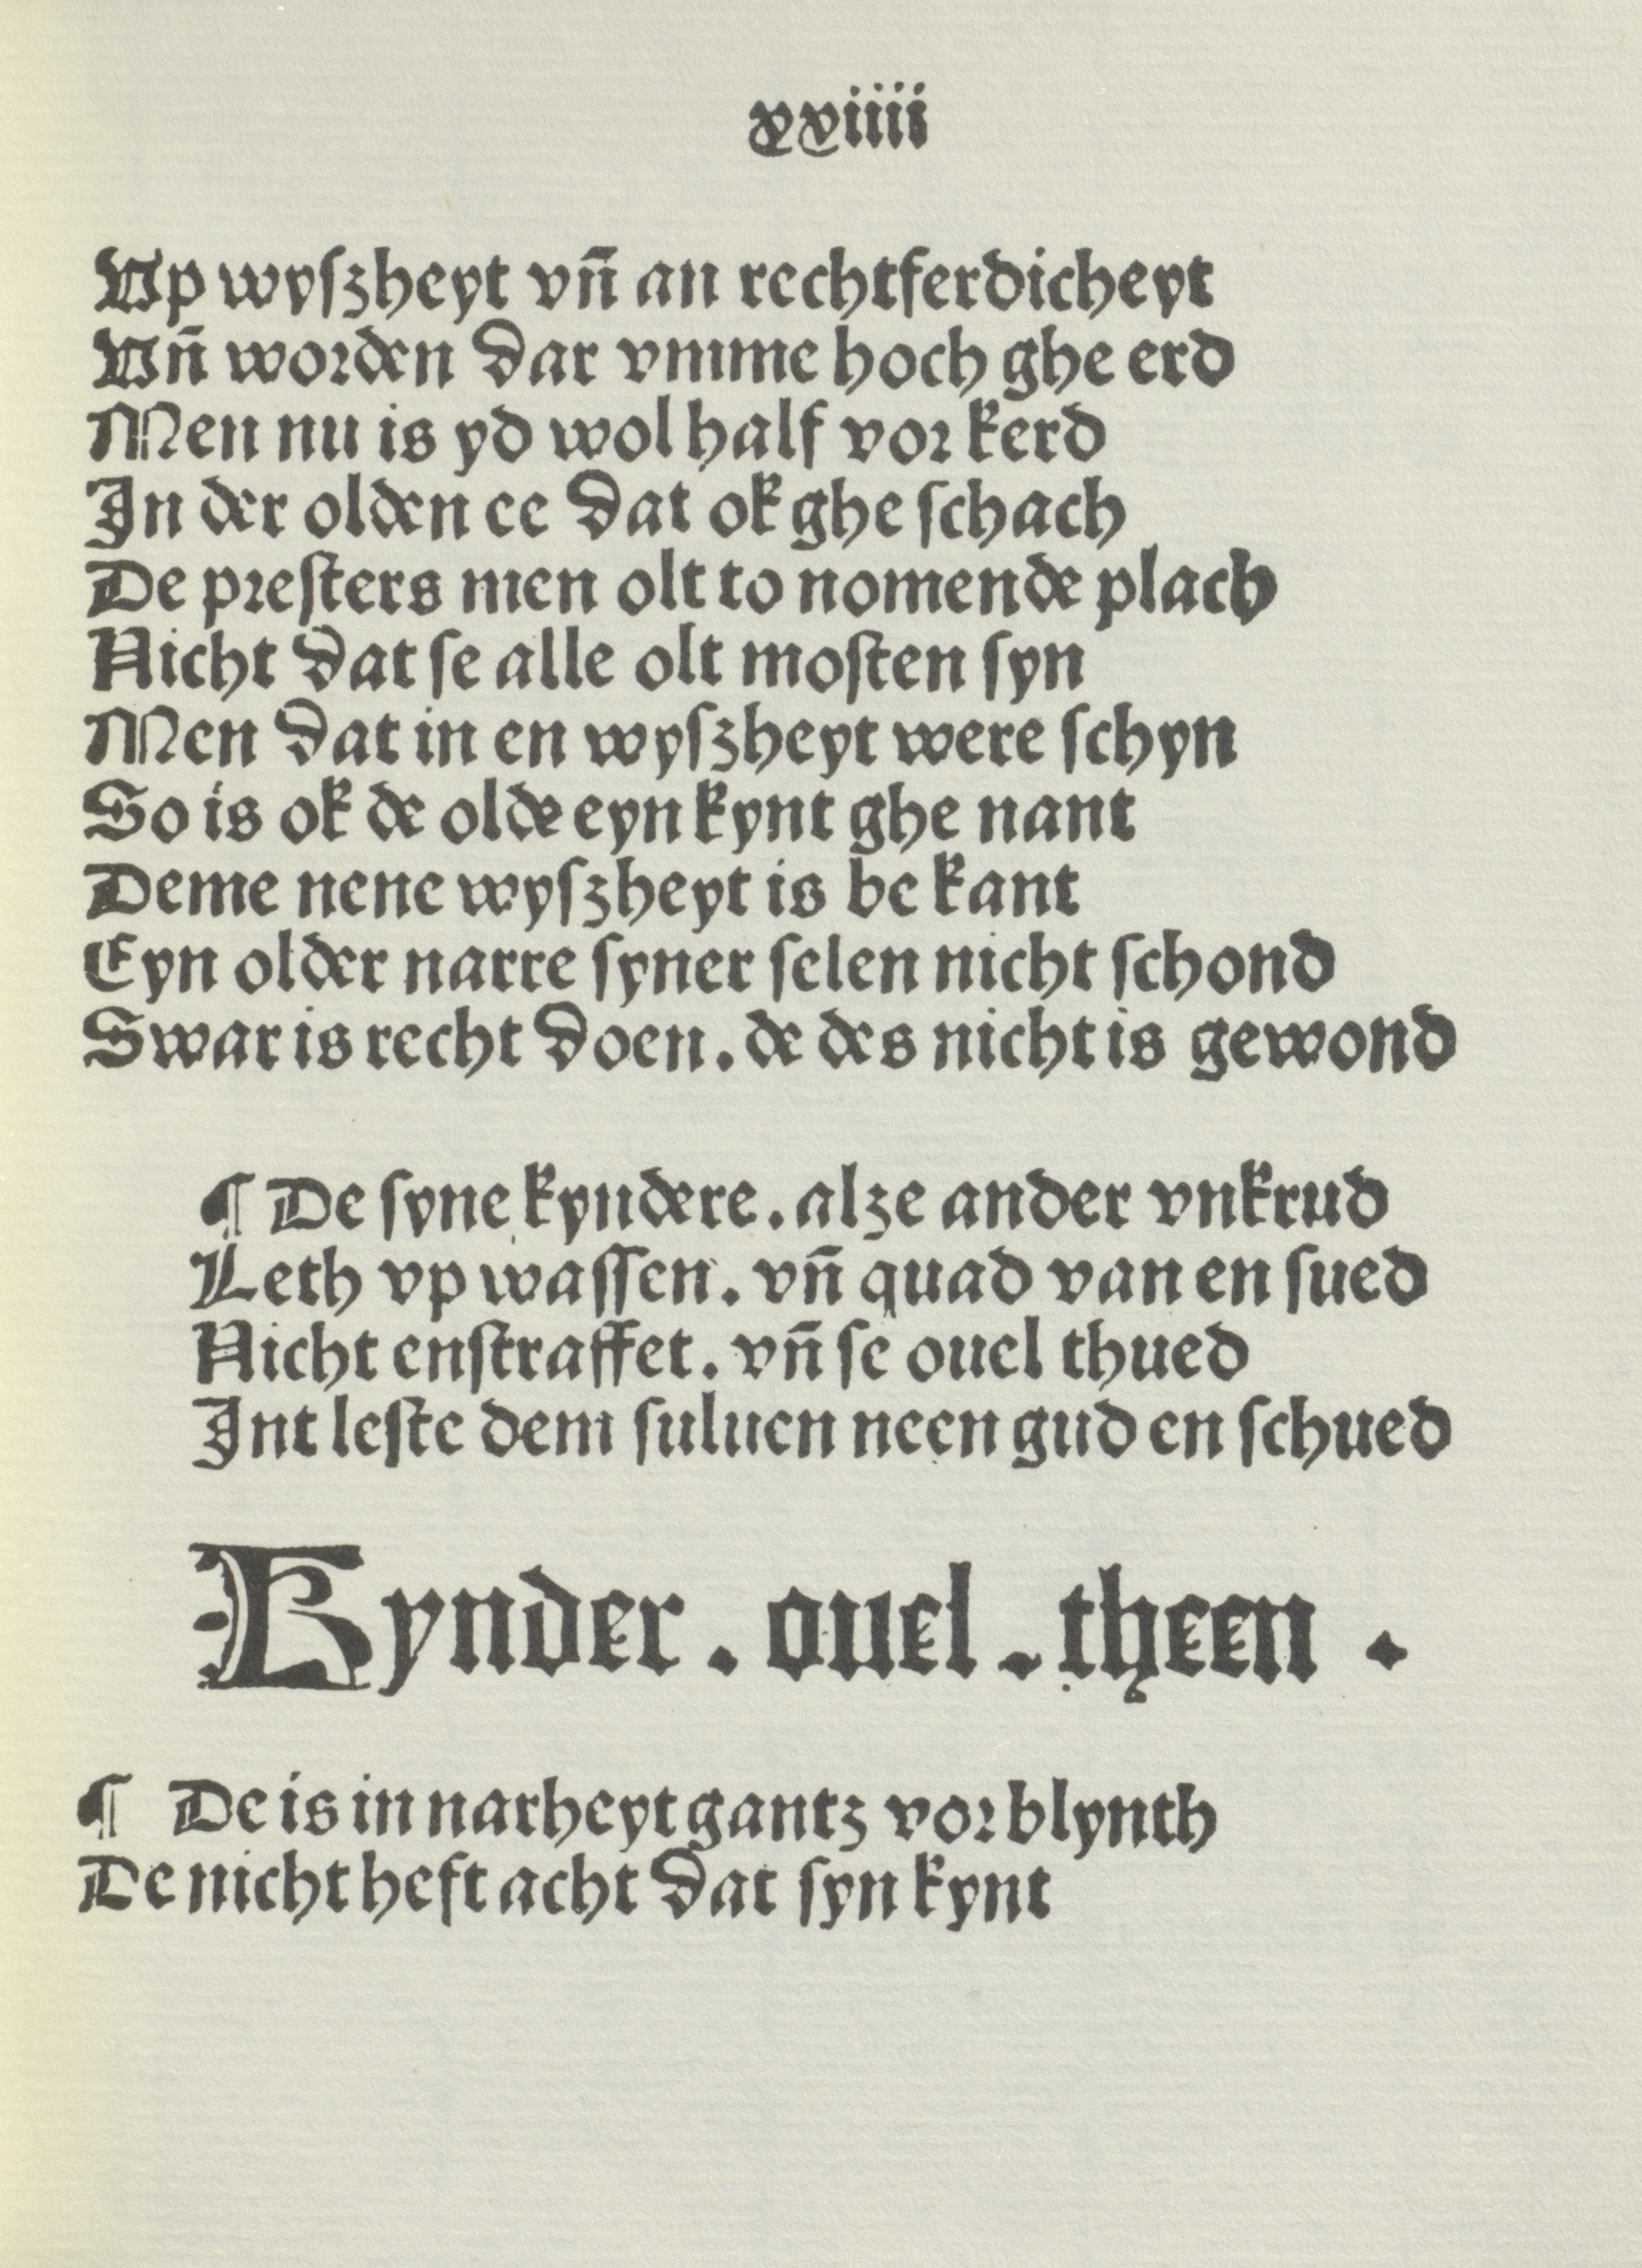 xxiiii
Vp wyſzheyt vn̄ an rechtferdicheyt
Vn̄ worden dar vmme hoch ghe erd
Men nu is yd wol half vor kerd
In der olden ee dat ok ghe ſchach
De preſters men olt to nomende plach
Nicht dat ſe alle olt moſten ſyn
Men dat in en wyſzheyt were ſchyn
So is ok de olde eyn kynt ghe nant
Deme nene wyſzheyt is be kant
Eyn older narre ſyner ſelen nicht ſchond
Swar is recht doen. de des nicht is gewond
¶ De ſyne kyndere. alze ander vnkrud
Leth vp waſſen. vn̄ quad van en ſued
Nicht enſtraffet. vn̄ ſe ouel thued
Int leſte dem ſuluen neen gud en ſchued
Kynder. ouel. theen.
¶ De is in narheyt gantz vor blynth
De nicht heft acht dat ſyn kynt